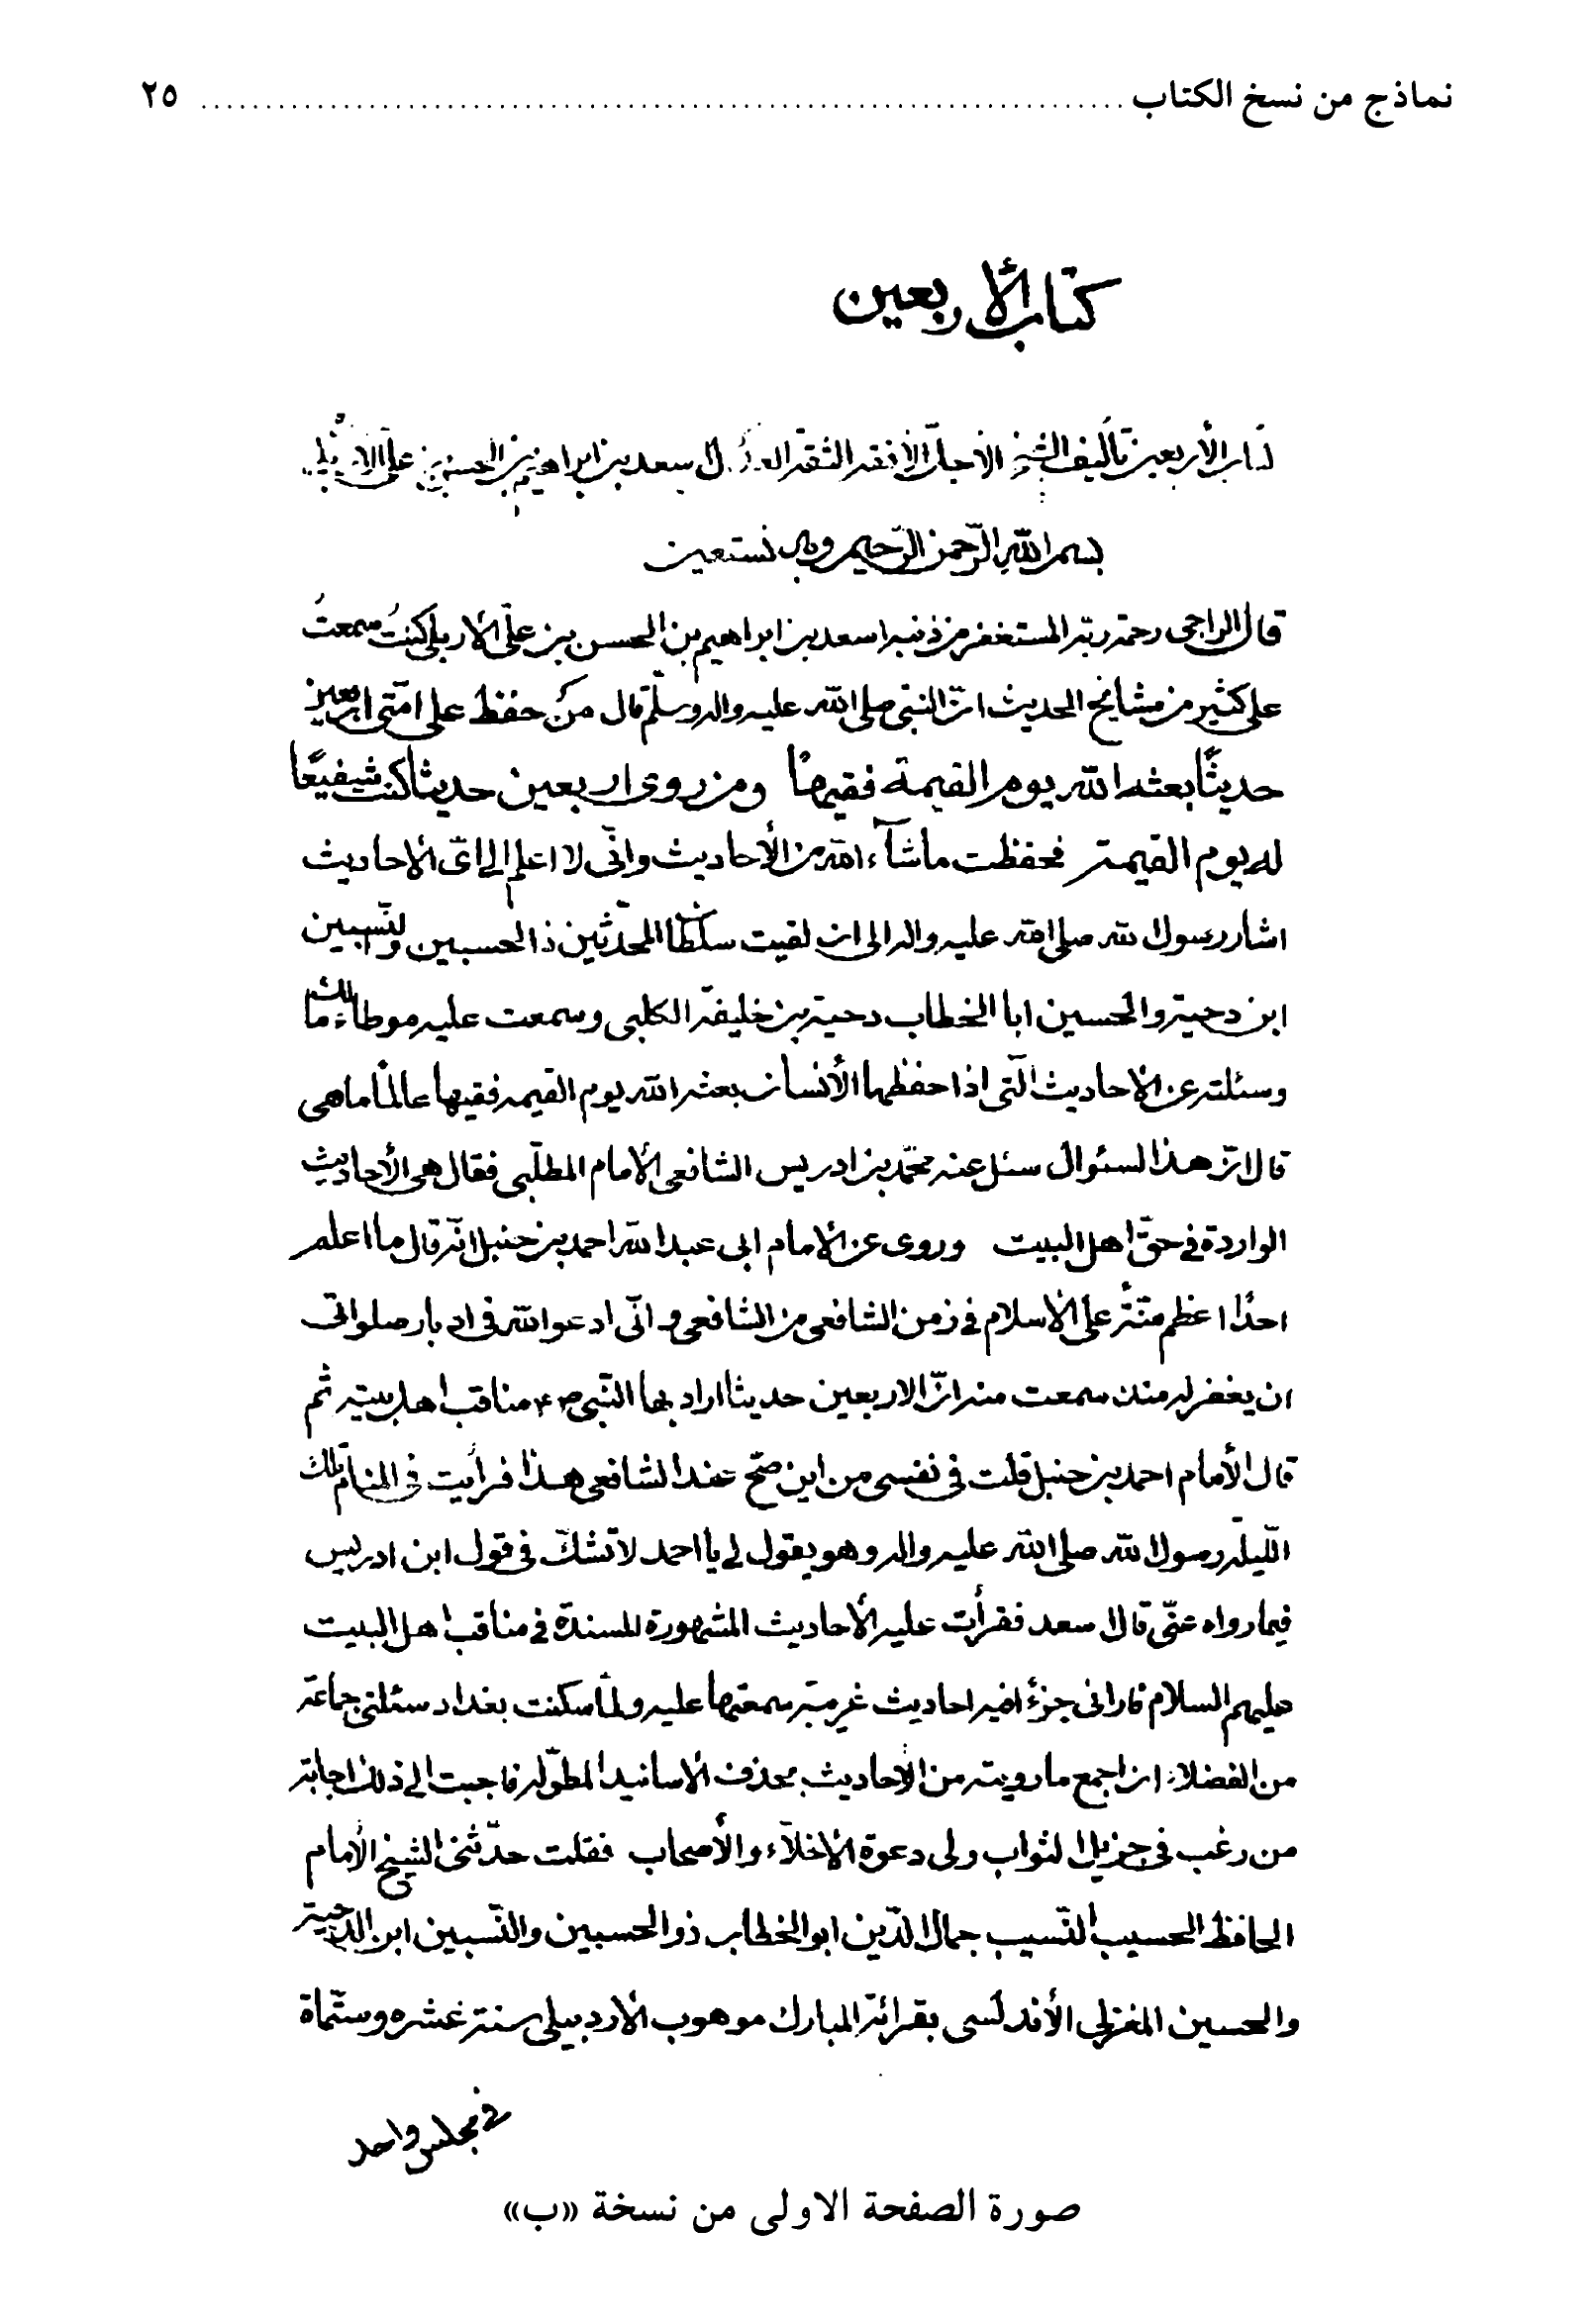 نماذج من نسخ الكتاب ........ ٢٥
كتاب الأربعين
الأربعين تأليف الشيخ الأجل الأفقه الثقة سعد بن ابراهيم بن الحسن بن على
بسم الله الرّحمن الرّحيم وبه نستعين
قال الراجى رحمة ربّه المستغفر من ذنبه اسعد بن ابراهيم بن الحسن بن علّى الاربلى كنتُ سمعتُ
على كثير من مشايخ الحديث انّ النبّى صلى الله عليه واله وسلّم قال مَن حفظ على امّتى اربعين
حديثًا بعثه الله يوم القيمة فقيهًا ومن روى اربعين حديثا كنت شفيعًا
له يوم القيمة فحفظت ما شآء الله من الأحاديث وانّى لا اعلم الى اىّ الاحاديث
اشار رسول الله صلى الله عليه واله الى ان لقيت سلطان المحدّثين ذا الحسبين والنّسبين
ابن دحية والحسين ابا الخطاب دحية بن خليفة الكلبى وسمعت عليه موطاء مالك
وسئلته عن الاحاديث الّتى اذا حفظها الأنسان بعثه الله يوم القيمه فقيها عالمًا ماهى
قال انّ هذا السئوال سئل عنه محمّد بن ادريس الشافعى الامام المطلّبى فقال هى الأحاديث
الواردة فى حقّ اهل البيت وروى عن الامام ابى عبد الله احمد بن حنبل انّه قال ما اعلم
احدًا اعظم منّة على الاسلام فى زمن الشافعى من الشافعى وانّى ادعو الله فى ادبار صلواتى
ان يغفر له منذ سمعت منه انّ الاربعين حديثا اراد بها النّبى ص مناقب اهل بيته ثم
قال الأمام احمد بن حنبل قلت فى نفسى من اين صحّ عند الشافعى هذا فرأيت فى المنام تلك
اللّيلة رسول الله صلى الله عليه واله وهو يقول لى يا احمد لا تشكّ فى قول ابن ادريس
فيما رواه عنّى قال سعد فقرأت عليه الأحاديث المشهورة المسندة فى مناقب اهل البيت
عليهم السلام فارانى جزءً فيه احاديث غريبة سمعتها عليه ولمّا سكنت بغداد سئلنى جماعة
من الفضلاء ان اجمع ما رويته من الأحاديث بحذف الاسانيد المطوّلة فاجبت الى ذلك اجابة
من رغب فى جزيل الثواب ولى دعوة الاخلآء والأصحاب فقلت حدّثنى الشيخ الأمام
الحافظ الحسيب النّسيب جمال الدّين ابو الخطاب ذو الحسبين والنّسبين ابن الدحية
والحسين المغربى الأندلسى بقرائة المبارك موهوب الاردبيلى سنة عشره وستّماة
فى مجلس واحد
صورة الصفحة الاولى من نسخة «ب»